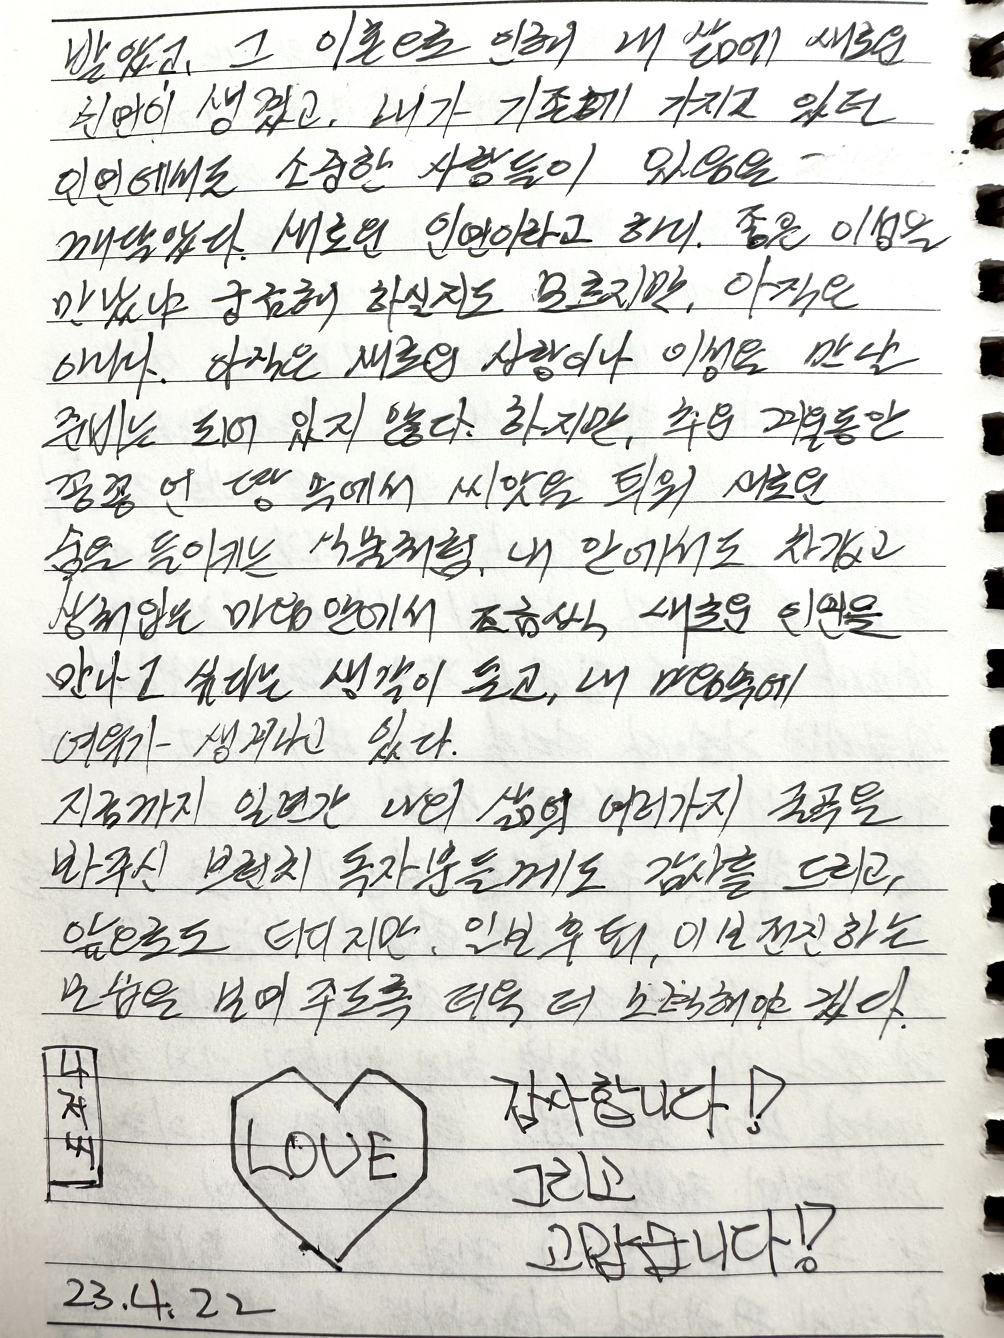 받았고, 그 이혼으로 인해 내 삶에 새로운
인연이 생겼고, 내가 기존에 가지고 있던
인연에서도 소중한 사람들이 있음을
깨달았다. 새로운 인연이라고 하니. 좋은 이성을
만났냐 궁금해 하실지도 모르지만, 아직은
아니다. 아직은 새로운 사랑이나 이성을 만날
준비는 되어 있지 않다. 하지만, 추운 겨울동안
꽁꽁 언 땅 속에서 씨앗을 틔워 새로운
숨을 들이쉬는 식물처럼, 내 안에서도 차갑고
상처입은 마음 안에서 조금씩, 새로운 인연을
만나고 싶다는 생각이 들고, 내 마음속에
여유가 생겨나고 있다.
지금까지 일년간 나의 삶의 여러가지 굴곡을
봐주신 브런치 독자분들께도 감사를 드리고,
앞으로도 더디지만, 일보후퇴, 이보전진하는
모습을 보여주도록 더욱 더 노력해야겠다.
나
저
씨
LOVE
감사합니다!
그리고
고맙습니다!
23.4.22